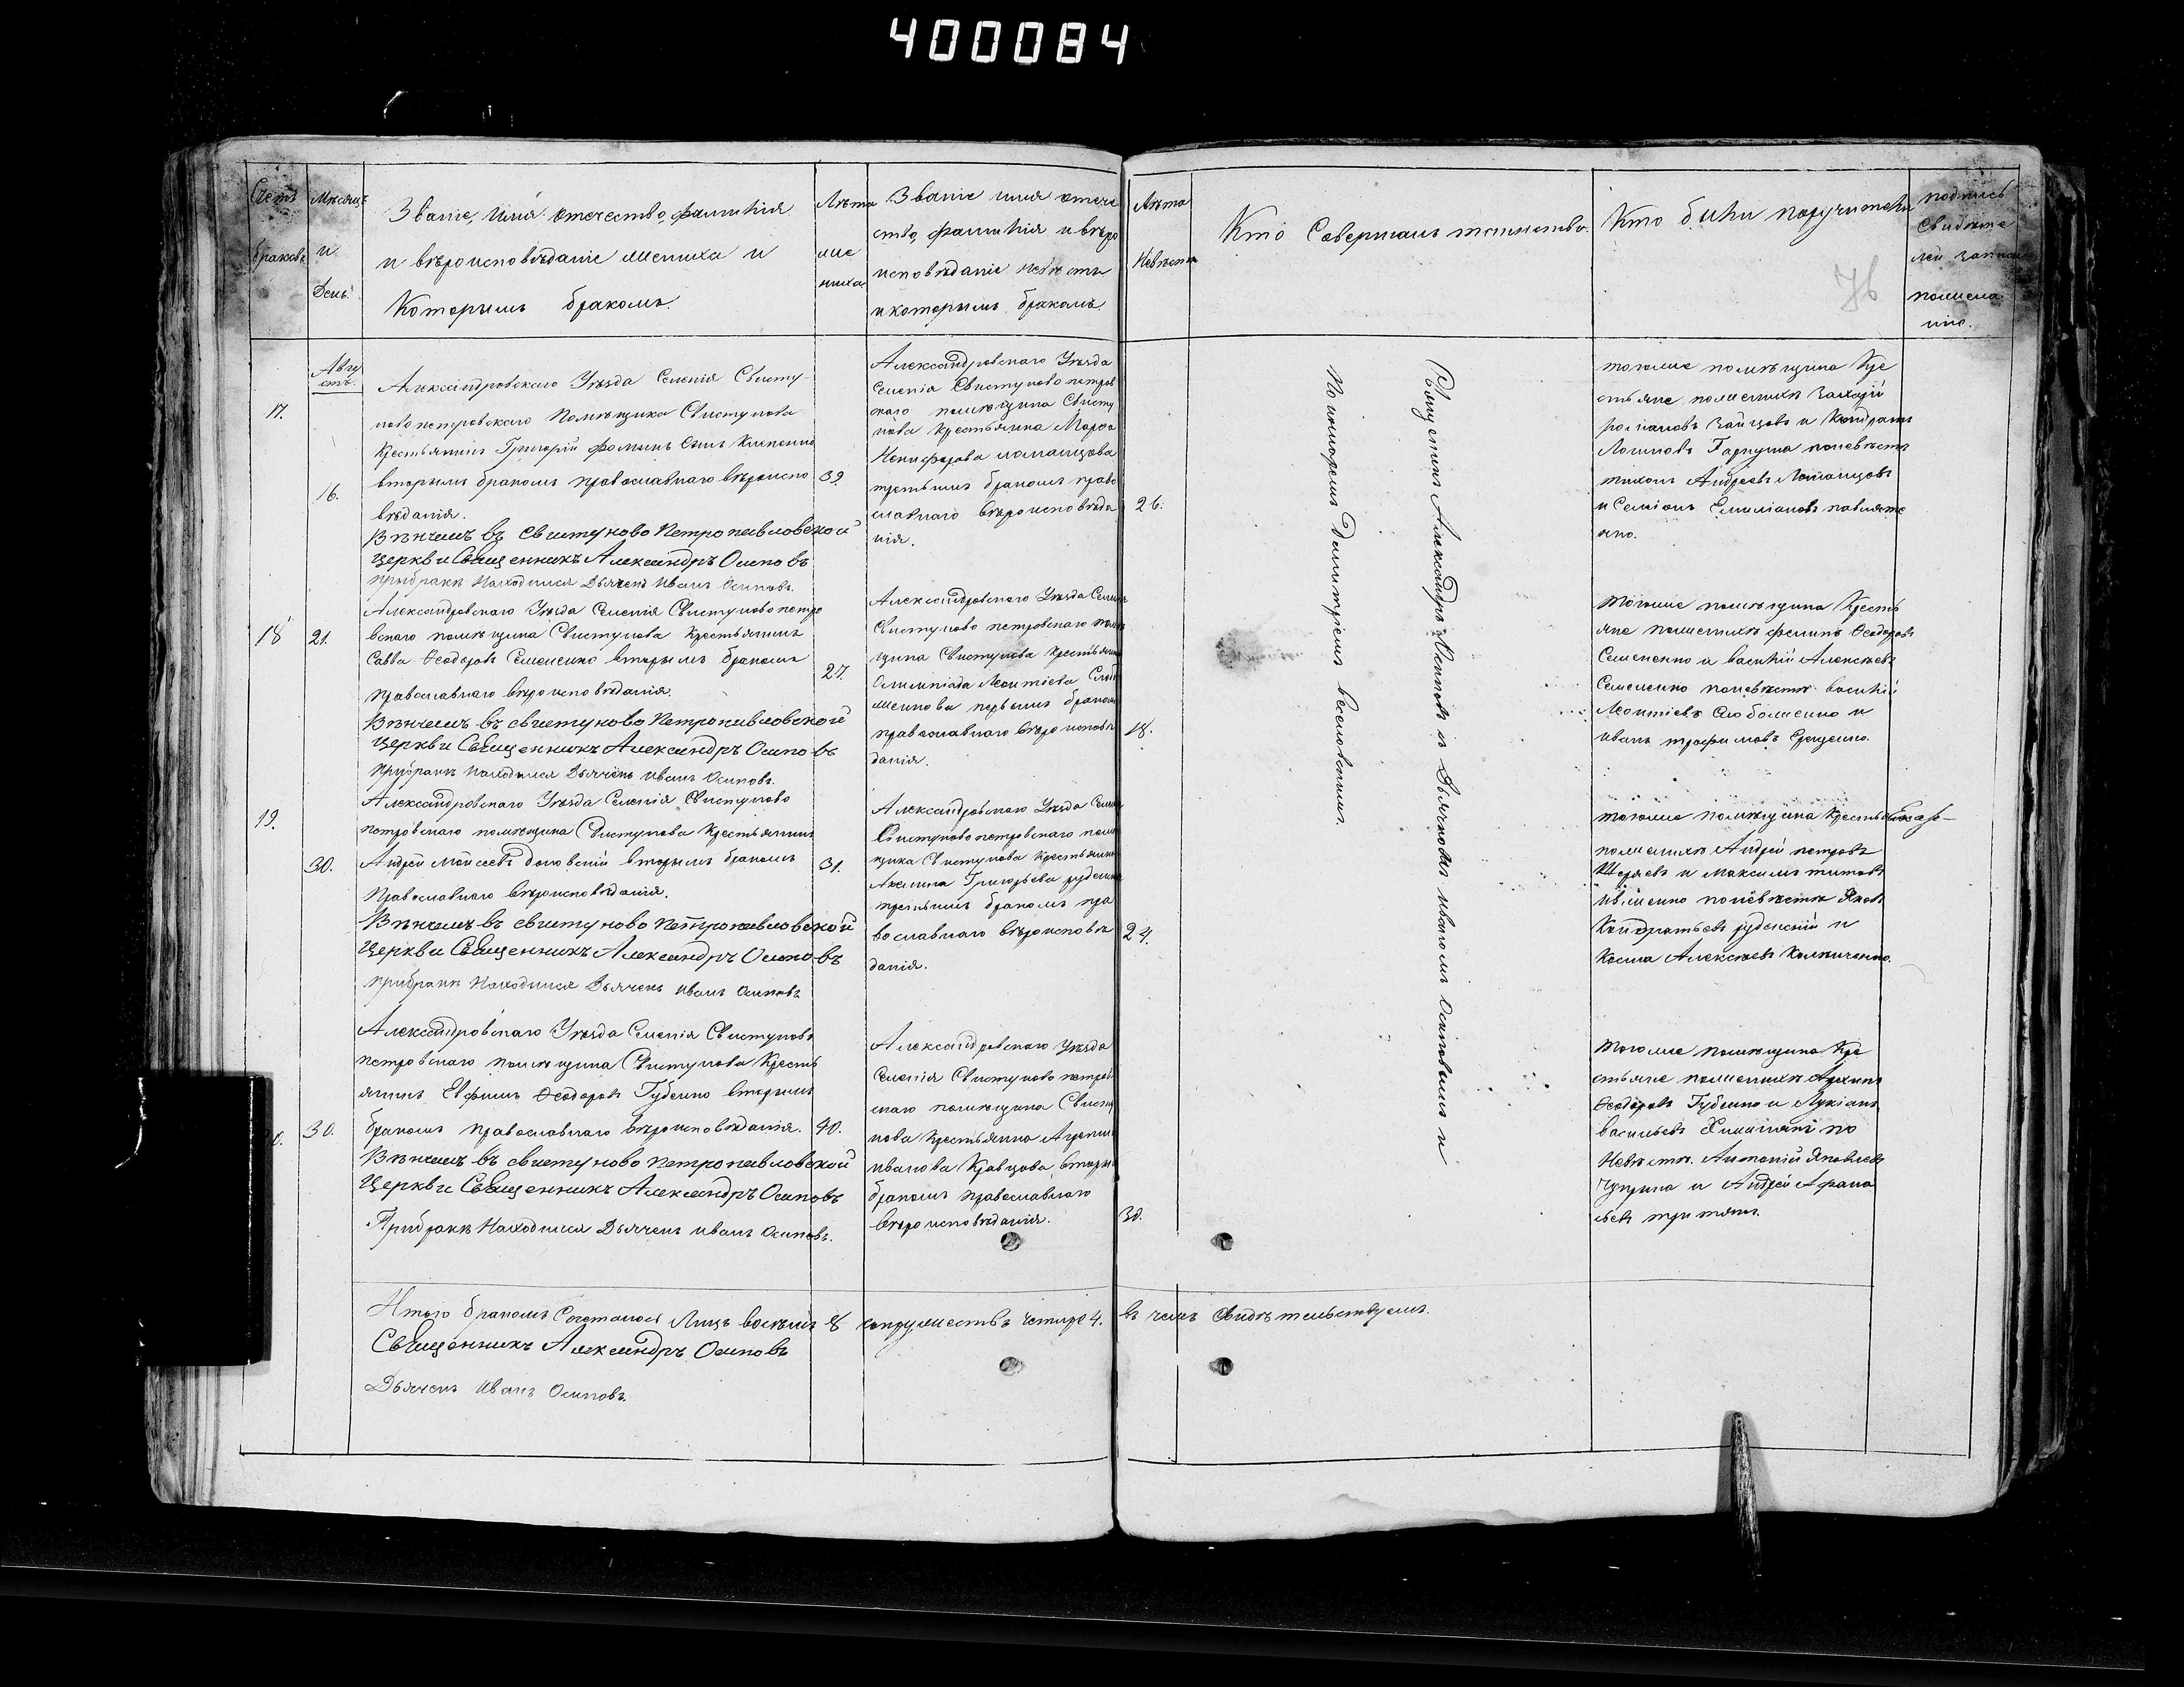 400084
Счетъ браковъ
Мѣсяцъ и День.
Званіе, имя отечество, фамилія
и вѣроисповѣданіе жениха и
Которымъ бракомъ.
Лѣта
же
ниха
Званіе имя отече
ство, фамилія и вѣро
исповѣданіе невѣсты
и которымъ бракомъ.
Лѣта
Невѣсты
Кто Совершалъ таинство.
Кто были поручители
подпись
Свидѣте
лей записи
по желa
нію.
Авгу
стъ.
17.
16.
Александровскаго Уѣзда Селенія Свисту-
ново петровскаго Помѣщика Свистунова
Крестьянинъ Григорій Фоминъ Сынъ
вторымъ бракомъ православнаго вѣроиспо
вѣданія.
39.
Вѣнчалъ въ Свистуново Петропавловской
Церкви Священникъ Александръ Осиповъ
при бракѣ Находился Дьячекъ Иванъ Осиповъ.
Александровскаго Уѣзда
Селенія Свистуново петров
скаго помѣщика Свисту
нова Крестьянка Марфа
Никифорова
третьимъ бракомъ право
славнаго вѣроисповѣда
нія.
26.
тогоже помѣщика Кре
стьяне по женихѣ Захарій
романовъ Зайцовъ и Кондратъ
Логиновъ по невѣстѣ
тихонъ Андреевъ
и Семіонъ Емиліановъ
18
21.
Александровскаго Уѣзда Селенія Свистуново петро
вскаго помѣщика Свистунова Крестьянинъ
Савва Ѳеодоровъ Семененко вторымъ бракомъ
православнаго вѣроисповѣданія.
27.
Вѣнчалъ въ Свистуново Петропавловской
Церкви Священникъ Александръ Осиповъ
При бракѣ Находился Дьячекъ Иванъ Осиповъ.
Александровскаго Уѣзда Селенія
Свистуново петровскаго помѣ
щика Свистунова Крестьянка
Олимпіада Леонтіева
первымъ бракомъ
православнаго вѣроисповѣ
данія.
18.
тогоже помѣщика Кресть
яне по женихѣ Ѳеодоровъ
Семененко и василій Алексѣевъ
Семененко по невѣстѣ василій
Леонтіевъ и
иванъ трофимовъ
19.
30.
Александровскаго Уѣзда Селенія Свистуново
петровскаго помѣщика Свистунова Крестьянинъ
Андрей Моисеевъ вторымъ бракомъ
Православнаго вѣроисповѣданія.
31.
Вѣнчалъ въ Свистуново Петропавловской
Церкви Священникъ Александръ Осиповъ
при бракѣ Находился Дьячекъ Иванъ Осиповъ
Александровскаго Уѣзда Селенія
Свистуново петровскаго помѣ
щика Свистунова Крестьянка
Акилина Григорьева
третьимъ бракомъ пра
вославнаго вѣроисповѣ
данія.
24.
тогоже помѣщика Крестьяне
по женихѣ Андрей петровъ
и Максимъ титовъ
по невѣстѣ Яковъ
Кондратьевъ руденкій и
Косма Алексѣевъ
30.
Александровскаго Уѣзда Селенія Свистуново
петровскаго помѣщика Свистунова Кресть
янинъ Евфимъ Ѳеодоровъ Губенко вторымъ
бракомъ православнаго вѣроисповѣданія.
40.
Вѣнчалъ въ Свистуново Петропавловской
Церкви Священникъ Александръ Осиповъ
При бракѣ Находился Дьячекъ Иванъ Осиповъ.
Александровскаго Уѣзда
Селенія Свистуново петров
скаго помѣщика Свисту
нова Крестьянка
иванова Кравцова, вторымъ
бракомъ православнаго
вѣроисповѣданія.
30.
тогоже помѣщика Кре
стьяне по женихѣ Архипъ
Ѳеодоровъ Губенко и Лукіанъ
васильевъ по
Невѣстѣ. Антоній Яковлевъ
Чуприна и Андрей Афана
сьевъ
Священникъ Александръ Осиповъ съ Дьячкомъ Иваномъ Осиповымъ и
Пономаремъ Димитріемъ
Итого бракомъ Сочеталось Лицъ восемь 8 супружествъ четыре 4. въ чемъ Свидѣтельствуемъ.
Священникъ Александръ Осиповъ
Дьячекъ Иванъ Осиповъ.